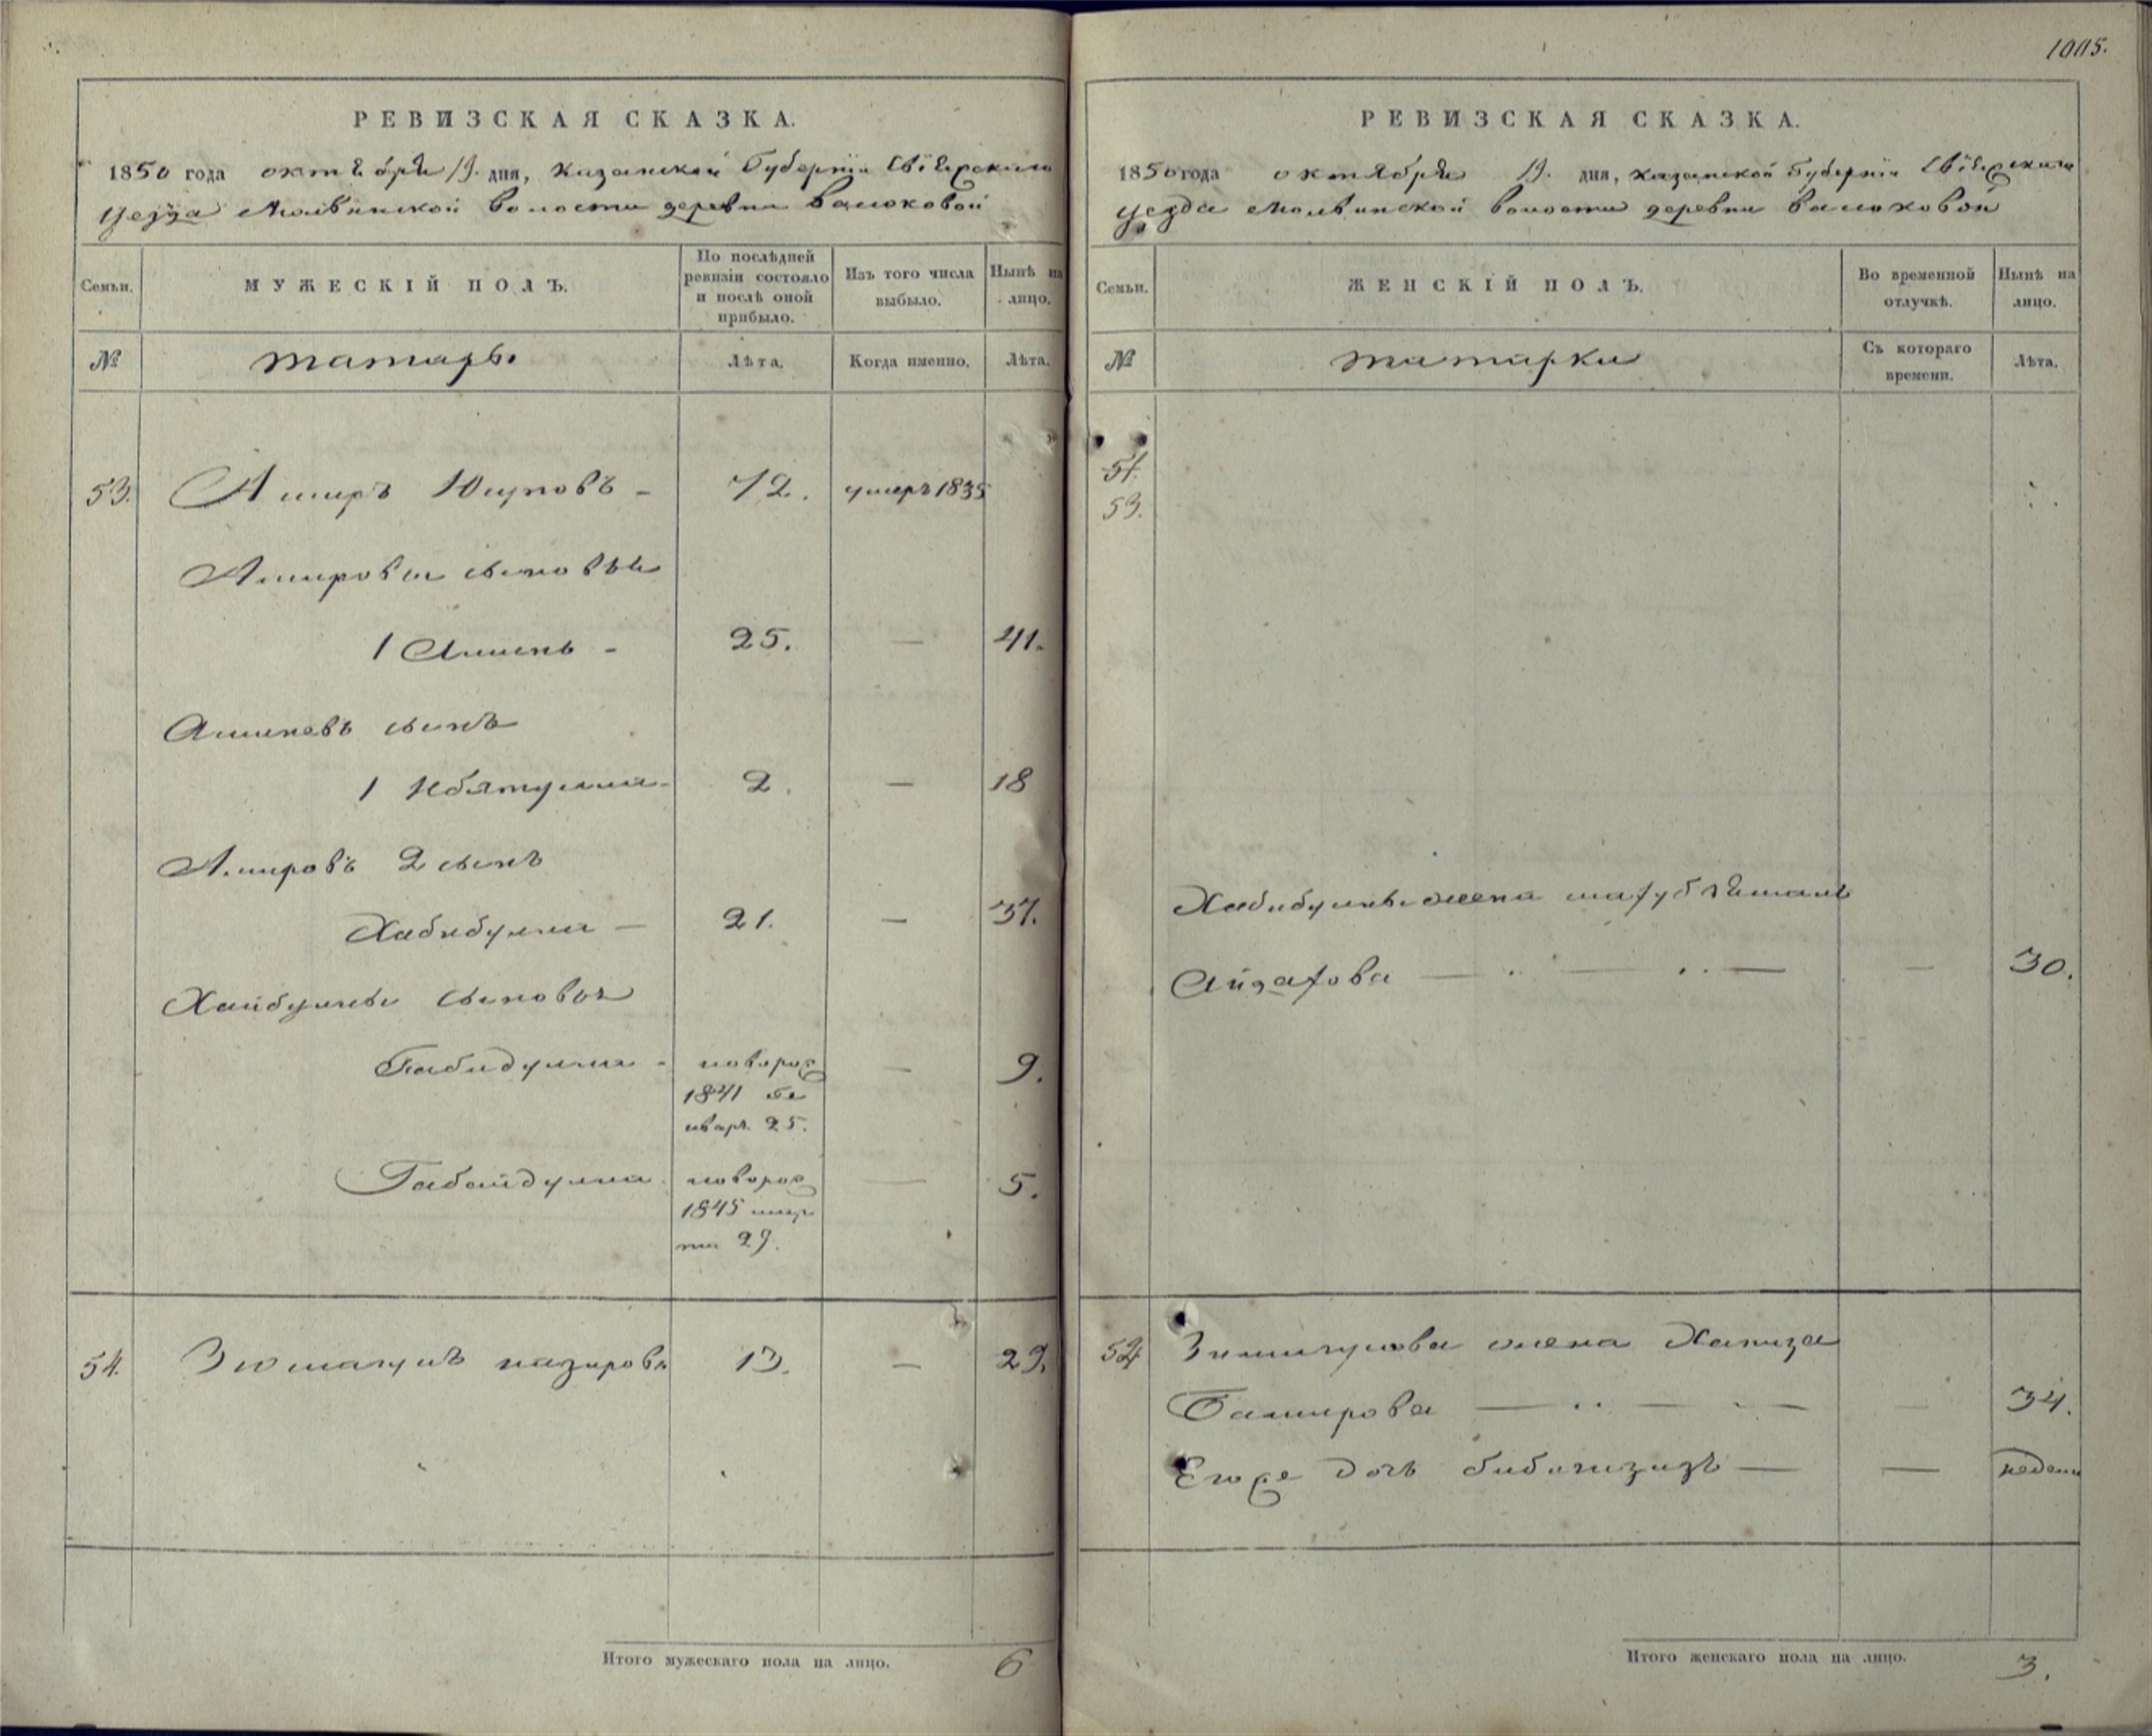 1005.
РЕВИЗСКАЯ СКАЗКА.
1850 года октября 19. дня, Казанской Губернии Свіяжскаго
уезда Молвинской волости деревни Балюковой
Семьи.
МУЖЕСКІЙ ПОЛЪ.
По послѣдней
ревизіи состояло
и послѣ оной
прибыло.
Изъ того числа
выбыло.
Нынѣ на
лицо.
№
татары
Лѣта.
Когда именно.
Лѣта.
53. Амиръ Юнусовъ - 72. умеръ 1835
Амировы сыновья
1 Аминь - 25. — 41.
Аминевъ сынъ
1 Ибятулла - 2. — 18
Амировъ 2 сынъ
Хабибулла — 21. — 37.
Хайбуллы сыновья
Габидулла - новорож 9.
1841 Ге
нваря 25.
Габайдулла новорож — 5.
1845 мар
та 29.
54. назировъ 13. — 29.
Итого мужескаго пола на лицо. 6
РЕВИЗСКАЯ СКАЗКА.
1850 года октября 19. дня, Казанской Губерніи Свіяжскаго
уезда Молвинской волости деревни Балюковой
Семьи.
ЖЕНСКІЙ ПОЛЪ.
Во временной
отлучкѣ.
Нынѣ на
лицо.
№
татарки
Съ котораго
времени.
Лѣта.
51.
53.
Хабибуллы жена
— 30.
жена
Баширова — — 34.
Его же дочь — — недели
Итого женскаго пола на лицо. 3.